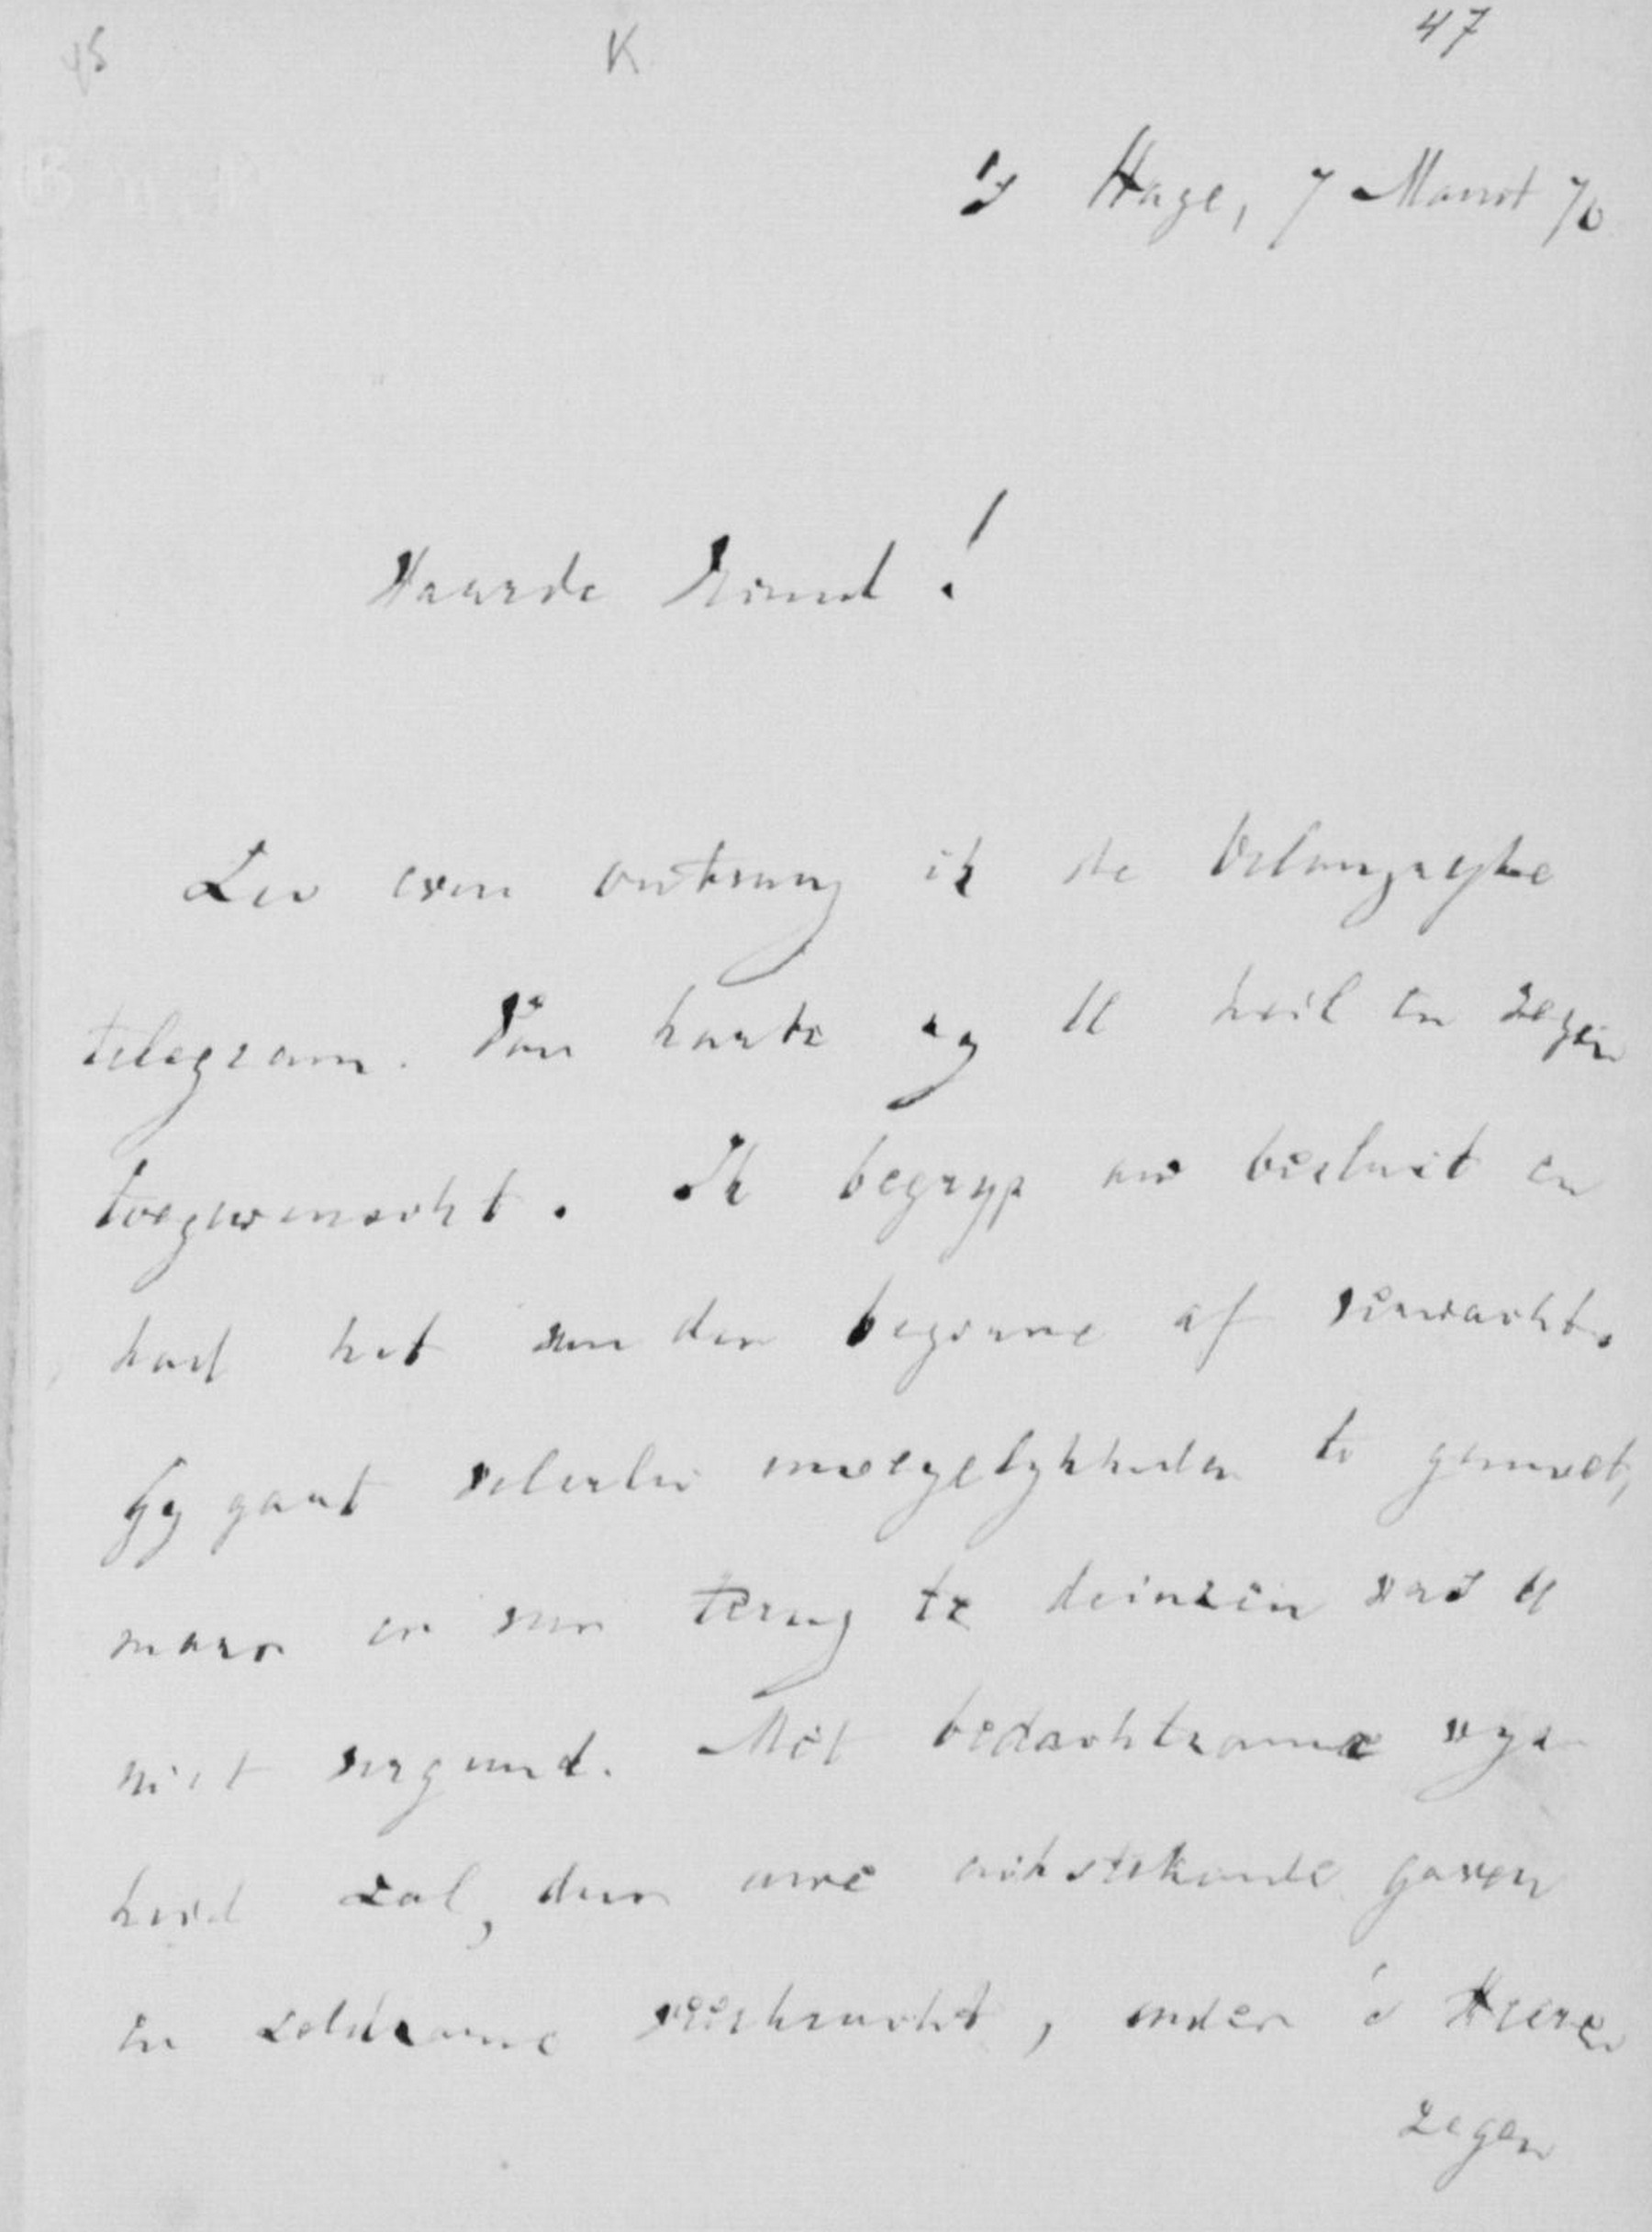 45 K 47
's Hage, 7 Maart 70
Waarde Vriend!
Zoo even ontvang ik de belangryke
telegram. Van harte zy U heil en zegen
toegewenscht. Ik begryp uw besluit en
had het van den beginne af verwacht.
Gy gaat velerlei moeyelykheden te gemoet,
maar er van terug te deinzen was U
niet vergund. Met bedachtzame wys-
heid zal, door uwe uitstekende gaven
en zeldzame veerkracht, onder 's Heeren
zegen